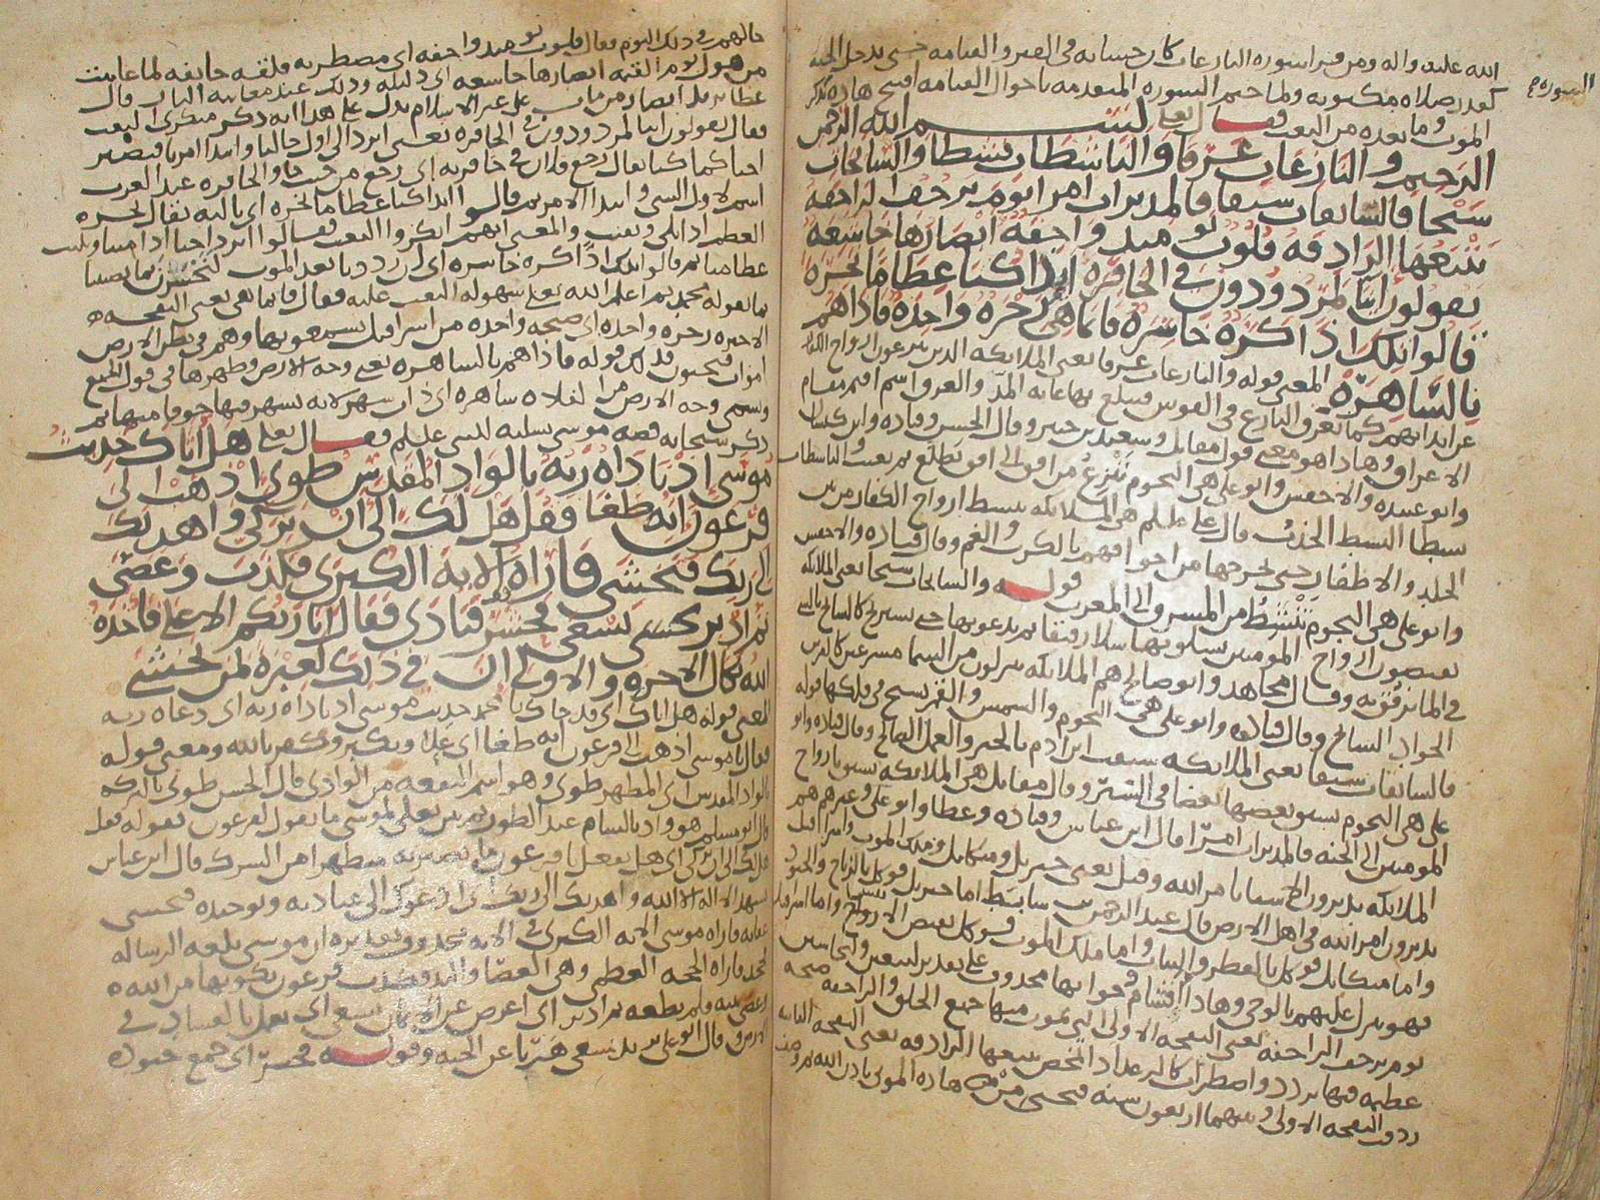 الله عليه واله ومن قرا سوره النازعات كان حسابه في القبر والقيامه حتى يدخل الجنه
كقدر صلاه مكتوبه ولما ختم السوره المتقدمه باحوال القيامه افتتح هاذه بذكر
الموت وما بعده من البعث فقال تعلى بسم الله الرحمن
الرحيم والنازعات غرقا والناشطات نشطا والسابحات
سبحا فالسابقات سبقا فالمدبرات امرا يوم ترجف الراجفه
تتبعها الرادفه قلوب يوميد واجفه ابصارها خاشعه
يقولون اينا لمردودون في الحافره ايذا كنا عظاما نخره
قالوا تلك اذا كره خاسره فانما هي زجره واحده فاذا هم
بالساهره المعنى قوله والنازعات غرقا يعني الملايكه الذين ينزعون ارواح الكفار
عن ابدانهم كما يغرق النازع في القوس فيبلغ بها غايه المد والغرق اسم اقيم مقام
الاغراق وهاذا هو معنى قول مقاتل وسعيد بن جبير وقال الحسن وقتاده وابن كيسان
وابو عبيده والاخفش وابو علي هي النجوم تنزع من افق الى افق تطلع ثم تغيب والناشطات
نشطا النشط الجذب قال علي عليلم هي الملايكه تنشط ارواح الكفار من بين
الجلد والاظفار حتى تخرجها من اجوافهم بالكرب والغم وقال قتاده والاخفش
وابو علي هي النجوم تنشط من المشرق الى المغرب قوله والسابحات سبحا يعني الملايكه
يقبضون ارواح المومنين يسلونها سلا رفيقا ثم يدعونها حتى تستريح كالسابح بالشي
في الما يرفق به وقال مجاهد وابو صالح هم الملايكه ينزلون من السما مسرعين كالفرس
الجواد السابح وقال قتاده وابو علي هي النجوم والشمس والقمر يسبح في فلكها قوله
فالسابقات سبقا يعني الملايكه سبقت ابن ادم بالخير والعمل الصالح وقال قتاده وابو
علي هي النجوم يسبق بعضها بعضا في السير وقال مقاتل هي الملايكه تسبق بارواح
المومنين الى الجنه فالمدبرات امرا قال ابن عباس وقتاده وعطا وابو علي وغيرهم هم
الملايكه يدبرون الاشيا بامر الله وقيل يعني جبريل وميكايل وملك الموت واسرافيل
يدبرون امر الله في اهل الارض قال عبد الرحمن بن سابط اما جبريل فوكل بالرياح والجنود
واما ميكايل فوكل بالقطر والنبات واما ملك الموت فوكل بقبض الارواح واما اسرافيل
فهو ينزل عليهم بالوحي وهاذا اقسام وجوابها محذوف على تقدير لتبعثن ولتحاسبن
يوم ترجف الراجفه يعني النفخه الاولى التي يموت منها جميع الخلق والراجفه صيحه
عظيمه فيها تردد واضطراب كالرعد اذا تمخض تتبعها الرادفه يعني النفخه الثانيه
ردفت النفخه الاولى وبينهما اربعون سنه فتحيي هاذه الموتى باذن الله
حالهم في ذلك اليوم فقال قلوب يوميد واجفه اي مضطربه قلقه خايفه لما عاينت
من هول يوم القيمه ابصارها خاشعه اي ذليله وذلك عند معاينه النار قال
عطا يريد ابصار من مات على غير الاسلام يدل على هذا انه ذكر منكري البعث
فقال يقولون اينا لمردودون في الحافره يعني انرد الى اول حالنا وابتدا امرنا فنصير
احيا كما كنا يقال رجع فلان في حافرته اي رجع من حيث جا والحافره عند العرب
اسم لاول الشي وابتدا الامر ثم قالوا ايذا كنا عظاما نخره اي باليه يقال نخره
العظم اذا بلي وتفتت والمعنى انهم انكروا البعث فقالوا انرد احيا اذا متنا وبليت
عظامنا ثم قالوا تلك اذا كره خاسره اي ان رددنا بعد الموت لنخسرن بما يصيبنا
بما يقوله محمد ثم اعلم الله تعلى سهوله البعث عليه فقال فانما هي يعني النفخه
الاخيره زجره واحده اي صيحه واحده من اسرافيل يسمعونها وهم في بطن الارض
اموات فيحيون فذلك قوله فاذا هم بالساهره يعني وجه الارض وظهرها في قول الجميع
وتسمى وجه الارض من الفلاه ساهره اي ذات سهر لانه يسهر فيها خوفا منها ثم
ذكر سبحانه قصه موسى تسليه للنبي عليلم فقال تعلى هل اتاك حديث
موسى اذ ناداه ربه بالواد المقدس طوى اذهب الى
فرعون انه طغا فقل هل لك الى ان تزكى واهديك
الى ربك فتخشى فاراه الايه الكبرى فكذب وعصى
ثم ادبر يسعى فحشر فنادى فقال انا ربكم الاعلى فاخذه
الله نكال الاخره والاولى ان في ذلك لعبره لمن يخشى
المعنى قوله هل اتاك اي قد جاك يا محمد حديث موسى اذ ناداه ربه اي دعاه ربه
فقال يا موسى اذهب الى فرعون انه طغا اي علا وتكبر وكفر بالله ومعنى قوله
بالواد المقدس اي المطهر طوى وهو اسم البقعه من الوادي قال الحسن طوي بالبركه
قال ابو مسلم هو واد بالشام عند الطور ثم بين تعلى لموسى ما يقول لفرعون بقوله فقل
هل لك الى ان تزكى اي هل تفعل يا فرعون ما تصير به متطهرا من الشرك قال ابن عباس
تشهد الا اله الا الله واهديك الى ربك اي ادعوك الى عبادته وتوحيده فتخشى
عقابه فاراه موسى الايه الكبرى في الايه محذوف تقديره ان موسى بلغه الرساله
فجحد فاراه الحجه العظمى وهي العصا واليد فكذب فرعون بكونها من الله
وعصى نبيه ولم يطعه ثم ادبر اي اعرض عن الايمان يسعى اي يعمل بالفساد في
الارض وقال ابو علي بن يسعى هربا عن الحيه وقوله فحشر اي جمع جنوده